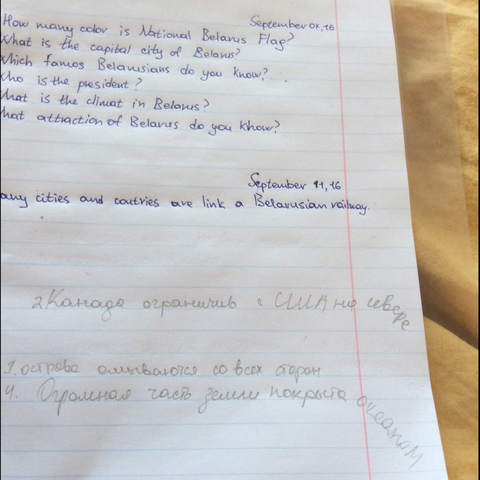 September 04,16
How many color is National Belarus Flag?
What is the capital city of Belarus?
Which famos Belarusians do you know?...
Who is the president?
What is the climat in Belarus?
hat attraction of Belarus do you know?
September 11,16
any cities and coutries are link a Belarusian railway.
2. Канада ограничив с США на севере
1. острова омываются со всех сторон
4. Огромная часть земли покрыта океаном